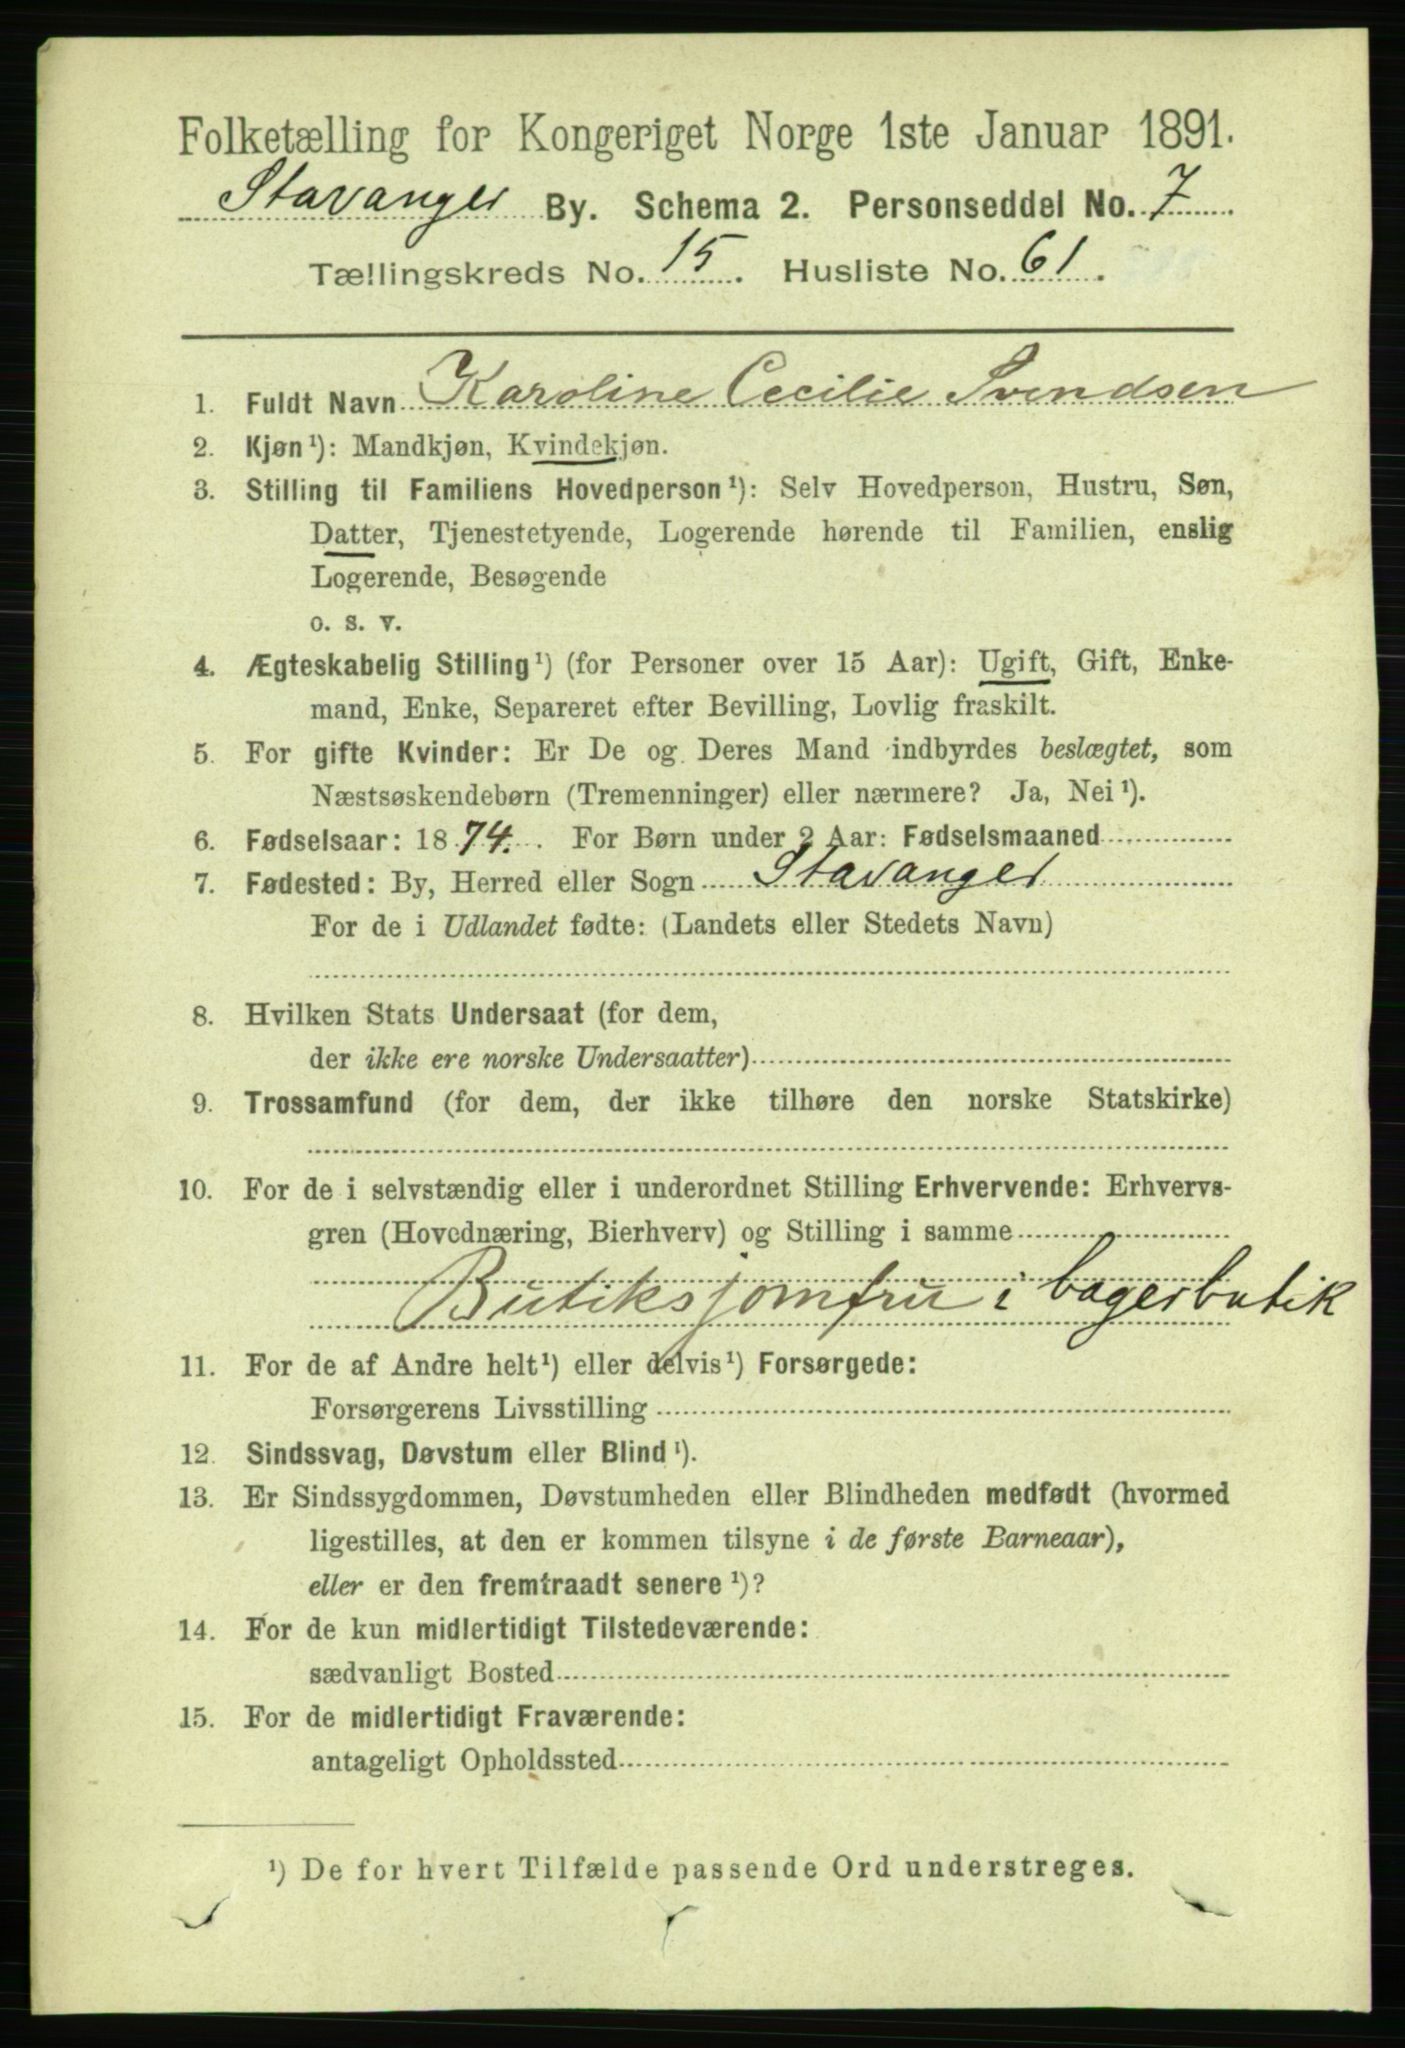 Folketælling for Kongeriget Norge 1ste Januar 1891.
Stavanger By. Schema 2. Personseddel No. 7
Tællingskreds No. 15. Husliste No. 61.
1. Fuldt Navn Karoline Cecilie Svendsen
2. Kjøn¹): Mandkjøn, Kvindekjøn.
3. Stilling til Familiens Hovedperson¹): Selv Hovedperson, Hustru, Søn,
Datter, Tjenestetyende, Logerende hørende til Familien, enslig
Logerende, Besøgende
o. s. v.
4. Ægteskabelig Stilling¹) (for Personer over 15 Aar): Ugift, Gift, Enke-
mand, Enke, Separeret efter Bevilling, Lovlig fraskilt.
5. For gifte Kvinder: Er De og Deres Mand indbyrdes beslægtet, som
Næstsøskendebørn (Tremenninger) eller nærmere? Ja, Nei¹).
6. Fødselsaar: 1874. For Børn under 2 Aar: Fødselsmaaned
7. Fødested: By, Herred eller Sogn Stavanger
For de i Udlandet fødte: (Landets eller Stedets Navn)
8. Hvilken Stats Undersaat (for dem,
der ikke ere norske Undersaatter)
9. Trossamfund (for dem, der ikke tilhøre den norske Statskirke)
10. For de i selvstændig eller i underordnet Stilling Erhvervende: Erhvervs-
gren (Hovednæring, Bierhverv) og Stilling i samme
Butiksjomfru i bagerbutik
11. For de af Andre helt¹) eller delvis¹) Forsørgede:
Forsørgerens Livsstilling
12. Sindssvag, Døvstum eller Blind¹).
13. Er Sindssygdommen, Døvstumheden eller Blindheden medfødt (hvormed
ligestilles, at den er kommen tilsyne i de første Barneaar),
eller er den fremtraadt senere¹)?
14. For de kun midlertidigt Tilstedeværende:
sædvanligt Bosted
15. For de midlertidigt Fraværende:
antageligt Opholdssted
¹) De for hvert Tilfælde passende Ord understreges.